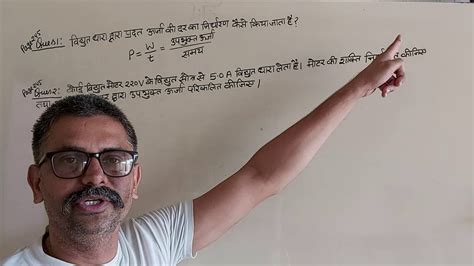 Page 245 Ques1. विद्युत धारा द्वारा प्रदत्त ऊर्जा की दर का निर्धारण कैसे किया जाता है?
P = W/t = उपभुक्त ऊर्जा/समय
Ques2. कोई विद्युत मोटर 220V के विद्युत स्रोत से 5.0 A विद्युत धारा लेता है। मोटर की शक्ति कीजिए
तथा द्वारा उपभुक्त ऊर्जा परिकलित कीजिए।